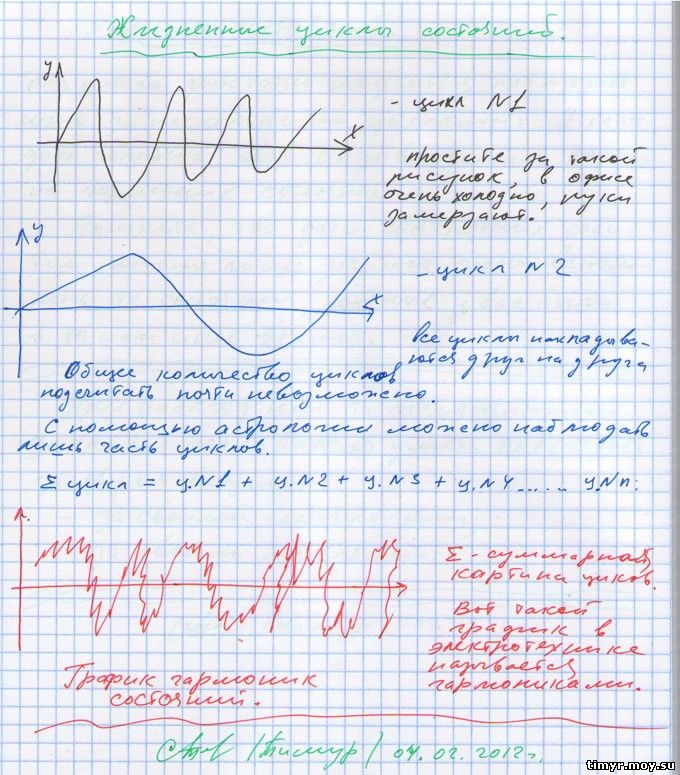 Жизненные циклы состояний.
y
x
- цикл N1
простите за такой
рисунок, в офисе
очень холодно, руки
замерзают.
y
x
- цикл N2
все циклы накладыва-
ются друг на друга
Общее количество циклов
подсчитать почти невозможно.
С помощью астрологии можно наблюдать
лишь часть циклов.
Σ цикл = ц.N1 + ц.N2 + ц.N3 + ц.N4...... ц.Nn.
Σ - суммарной
картина циклов.
Вот такой
график в
электротехнике
называется
гармониками.
График гармоник
состояний.
/Тимур/ 04.02.2012г.
timyr.moy.su